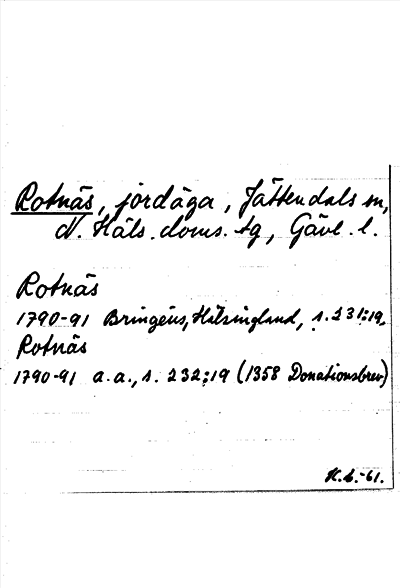 Rotnäs, jordäga, Jättendals sn,
N. Häls. doms. tg, Gävl. l.
Rotnäs
1790-91 Bringéus, Hälsingland, s. 231:19.
Rotnäs
1790-91 a.a., s. 232:19 (1358 Donationsbrev)
H.L.-61.